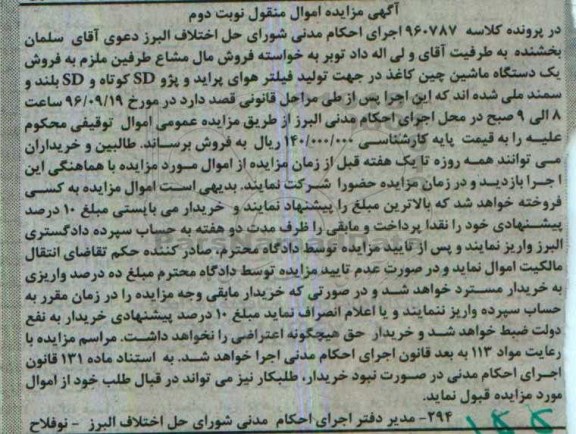 آگهی مزایده اموال منقول نوبت دوم
در پرونده کلاسه ۹۶۰۷۸۷ اجرای احکام مدنی شورای حل اختلاف البرز دعوی آقای سلمان
بخشنده به طرفیت آقای ولی اله داد توبر به خواسته فروش مال مشاع طرفین ملزم به فروش
یک دستگاه ماشین چین کاغذ در جهت تولید فیلتر هوای پراید و پژو SD کوتاه و SD بلند و
سمند ملی شده اند که این اجرا پس از طی مراحل قانونی قصد دارد در مورخ ۹۶/۰۹/۱۹ ساعت
۸ الی ۹ صبح در محل اجرای احکام مدنی البرز از طریق مزایده عمومی اموال توقیفی محکوم
علیه را به قیمت پایه کارشناسی ۱۴۰/۰۰۰/۰۰۰ ریال به فروش برساند. طالبین و خریداران
می توانند همه روزه تا یک هفته قبل از زمان مزایده از اموال مورد مزایده با هماهنگی این
اجرا بازدید و در زمان مزایده حضورا شرکت نمایند. بدیهی است اموال مزایده به کسی
فروخته خواهد شد که بالاترین مبلغ را پیشنهاد نمایند و خریدار می بایستی مبلغ ۱۰ درصد
پیشنهادی خود را نقدا پرداخت و مابقی را ظرف مدت دو هفته به حساب سپرده دادگستری
البرز واریز نمایند و پس از تایید مزایده توسط دادگاه محترم، صادر کننده حکم تقاضای انتقال
مالکیت اموال نماید و در صورت عدم تایید مزایده توسط دادگاه محترم مبلغ ده درصد واریزی
به خریدار مسترد خواهد شد و در صورتی که خریدار مابقی وجه مزایده را در زمان مقرر به
حساب سپرده واریز ننمایند و یا اعلام انصراف نماید مبلغ ۱۰ درصد پیشنهادی خریدار به نفع
دولت ضبط خواهد شد و خریدار حق هیچگونه اعتراضی را نخواهد داشت. مراسم مزایده با
رعایت مواد ۱۱۳ به بعد قانون اجرای احکام مدنی اجرا خواهد شد. به استناد ماده ۱۳۱ قانون
اجرای احکام مدنی در صورت نبود خریدار، طلبکار نیز می تواند در قبال طلب خود از اموال
مورد مزایده قبول نماید.
۲۹۴- مدیر دفتر اجرای احکام مدنی شورای حل اختلاف البرز - نوفلاح